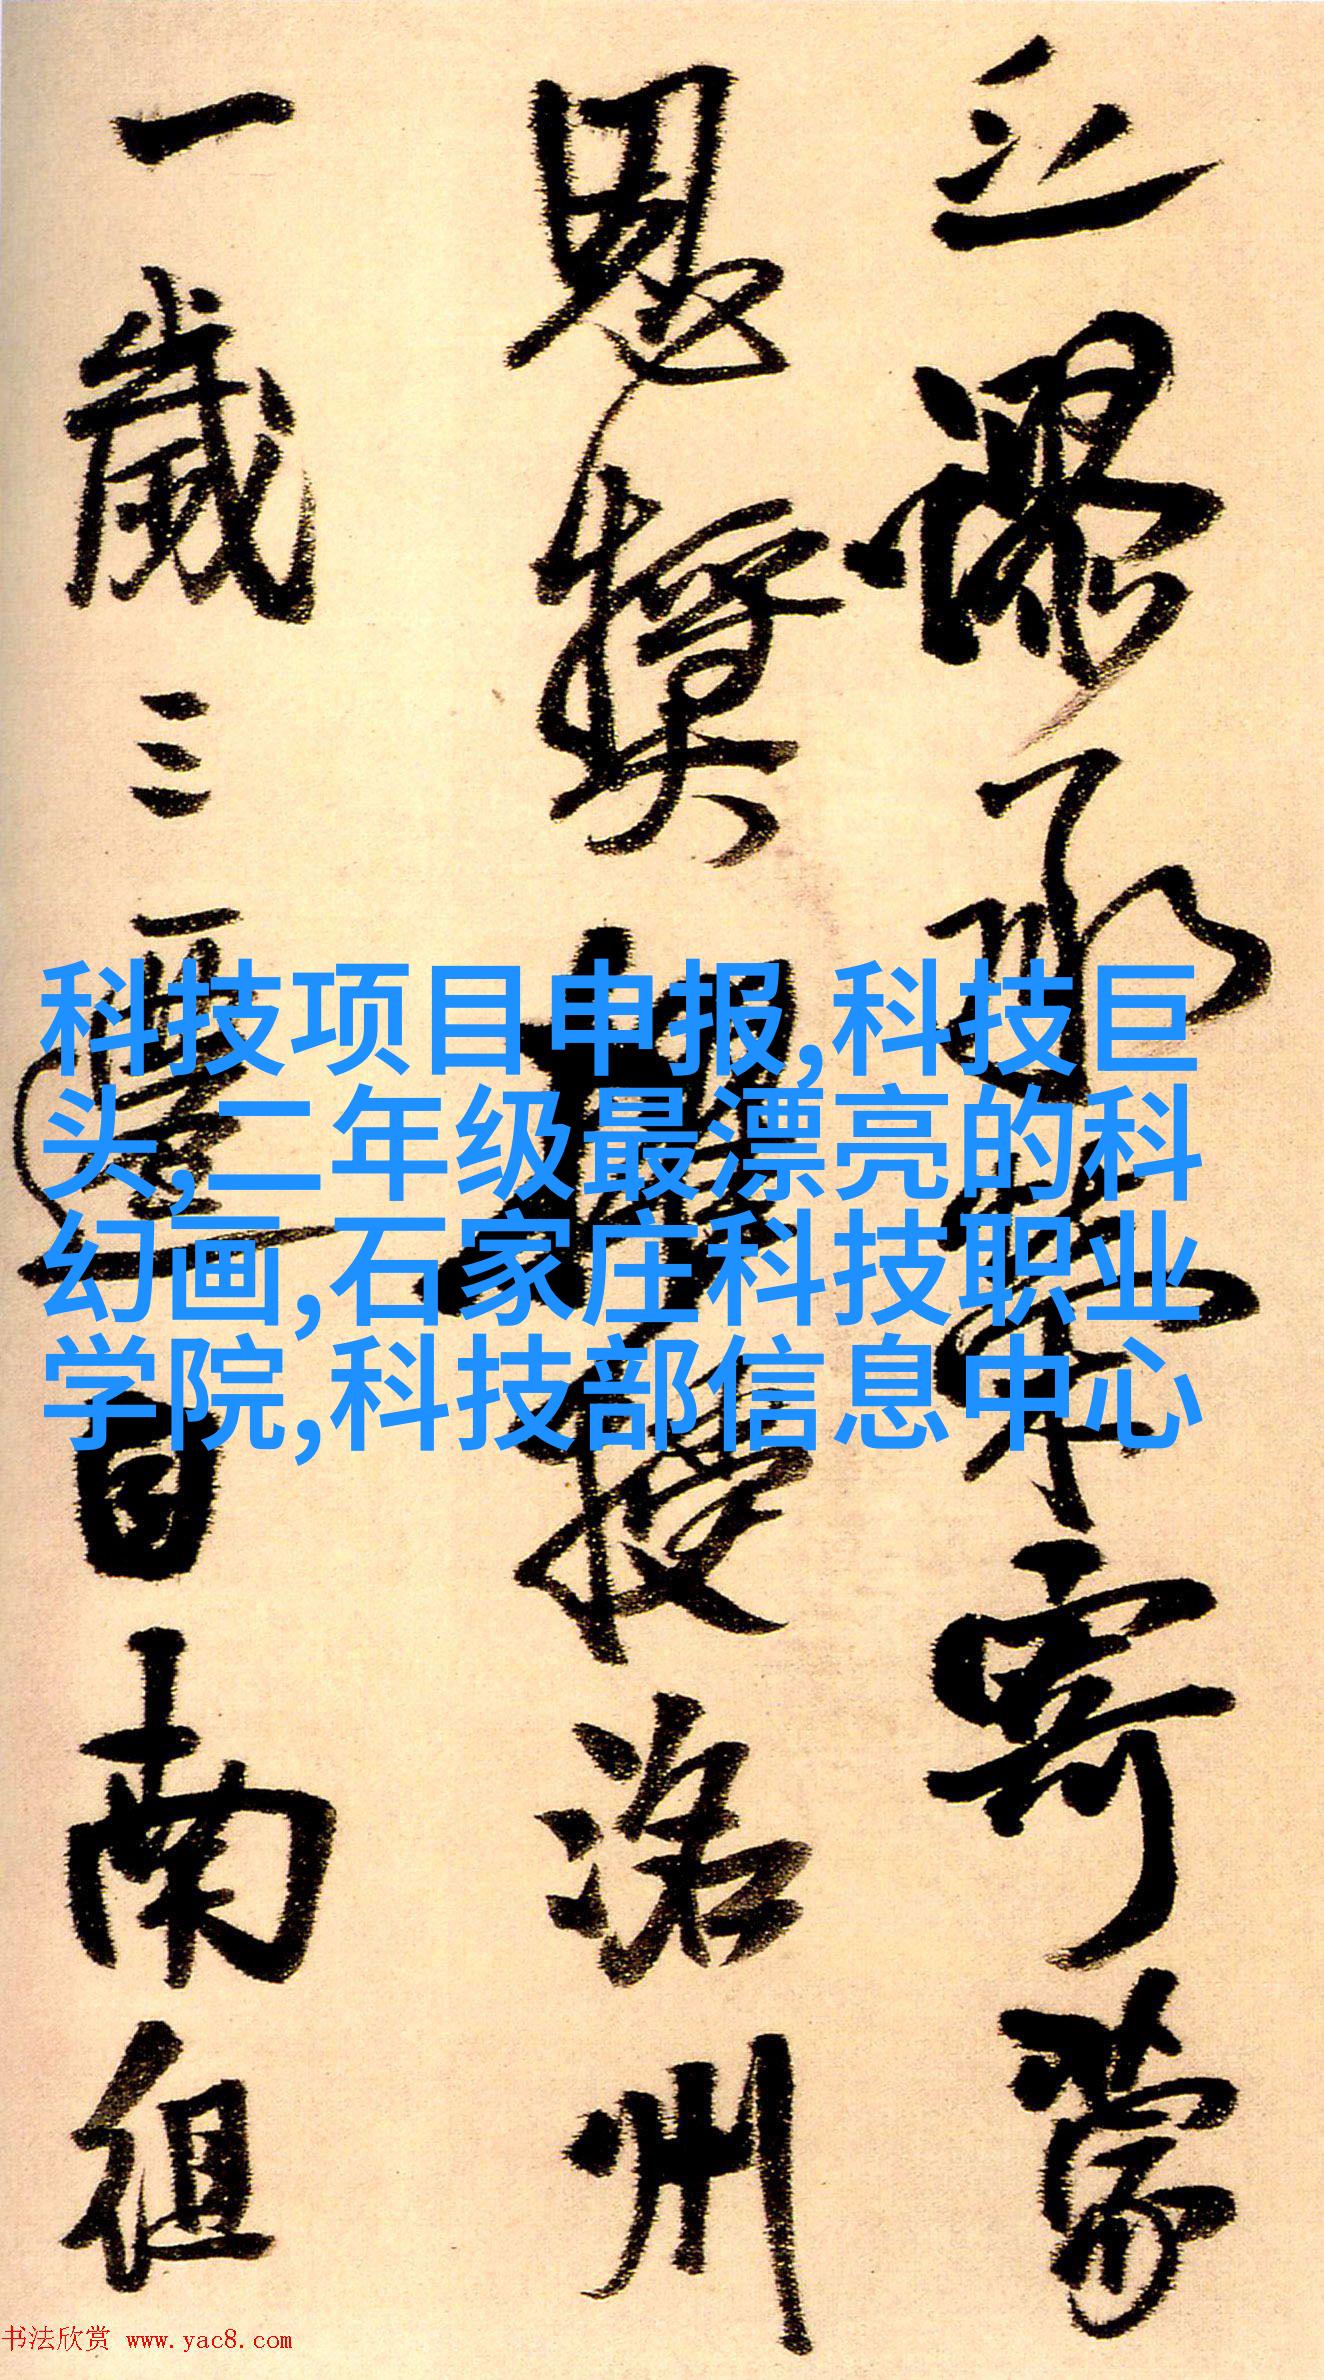 謬承榮寄蒙
恩獎擢授州
一歲三遷自南徂
科技项目申报,科技巨
头,二年级最漂亮的科
幻画,石家庄科技职业
学院,科技部信息中心
书法欣赏 www.yac8.com